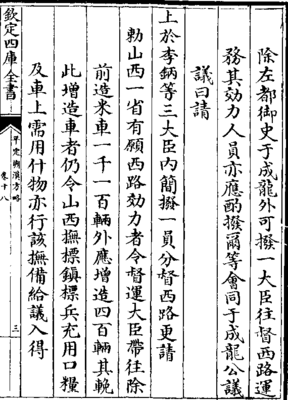 除左都御史于成龍外可撥一大臣往督西路運
務其効力人員亦應酌撥爾等會同于成龍公議
議曰請
上於李鈵等三大臣内簡撥一員分督西路更請
勅山西一省有願西路効力者令督運大臣帶往除
前造米車一千一百輛外應增造四百輛其輓
此增造車者仍令山西撫標鎮標兵充用口糧
及車上需用什物亦行該撫備給議入得
欽定四庫全書
平定朔漠方略
卷十八
三